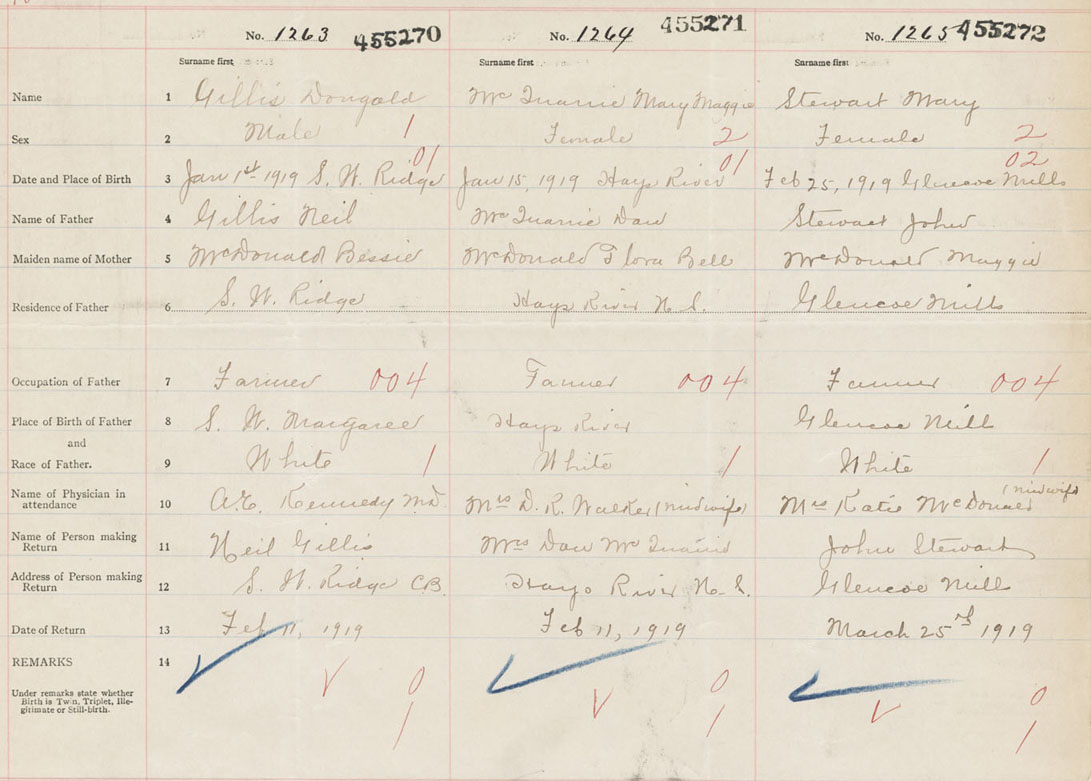 No. 1263 455270 No. 1264 455271 No. 1265 455272
Surname first Surname first Surname first
Name 1 Gillis Dougald McQuarrie Mary Maggie Stewart Mary
Sex 2 Male 1 Female 2 Female 2
01 01 02
Date and Place of Birth 3 Jan 1st 1919 S. W. Ridge Jan 15, 1919 Hays River Feb 25, 1919 Glencoe Mills
Name of Father 4 Gillis Neil McQuarrie Dan Stewart John
Maiden name of Mother 5 McDonald Bessie McDonald Flora Bell McDonald Maggie
Residence of Father 6 S. W. Ridge Hays River N. S. Glencoe Mills
Occupation of Father 7 Farmer 004 Farmer 004 Farmer 004
Place of Birth of Father 8 S. W. Margaree Hays River Glencoe Mills
and
Race of Father. 9 White 1 White 1 White 1
Name of Physician in attendance 10 A.E. Kennedy M.D. Mrs D. R. Walker (midwife) Mrs Katie McDonald (midwife)
Name of Person making Return 11 Neil Gillis Mrs Dan McQuarrie John Stewart
Address of Person making Return 12 S. W. Ridge C.B. Hays River N. S. Glencoe Mills
Date of Return 13 Feb 11, 1919 Feb 11, 1919 March 25rd 1919
REMARKS 14
Under remarks state whether
Birth is Twin, Triplet, Ille-
gitimate or Still-birth.
0 0 0
1 1 1